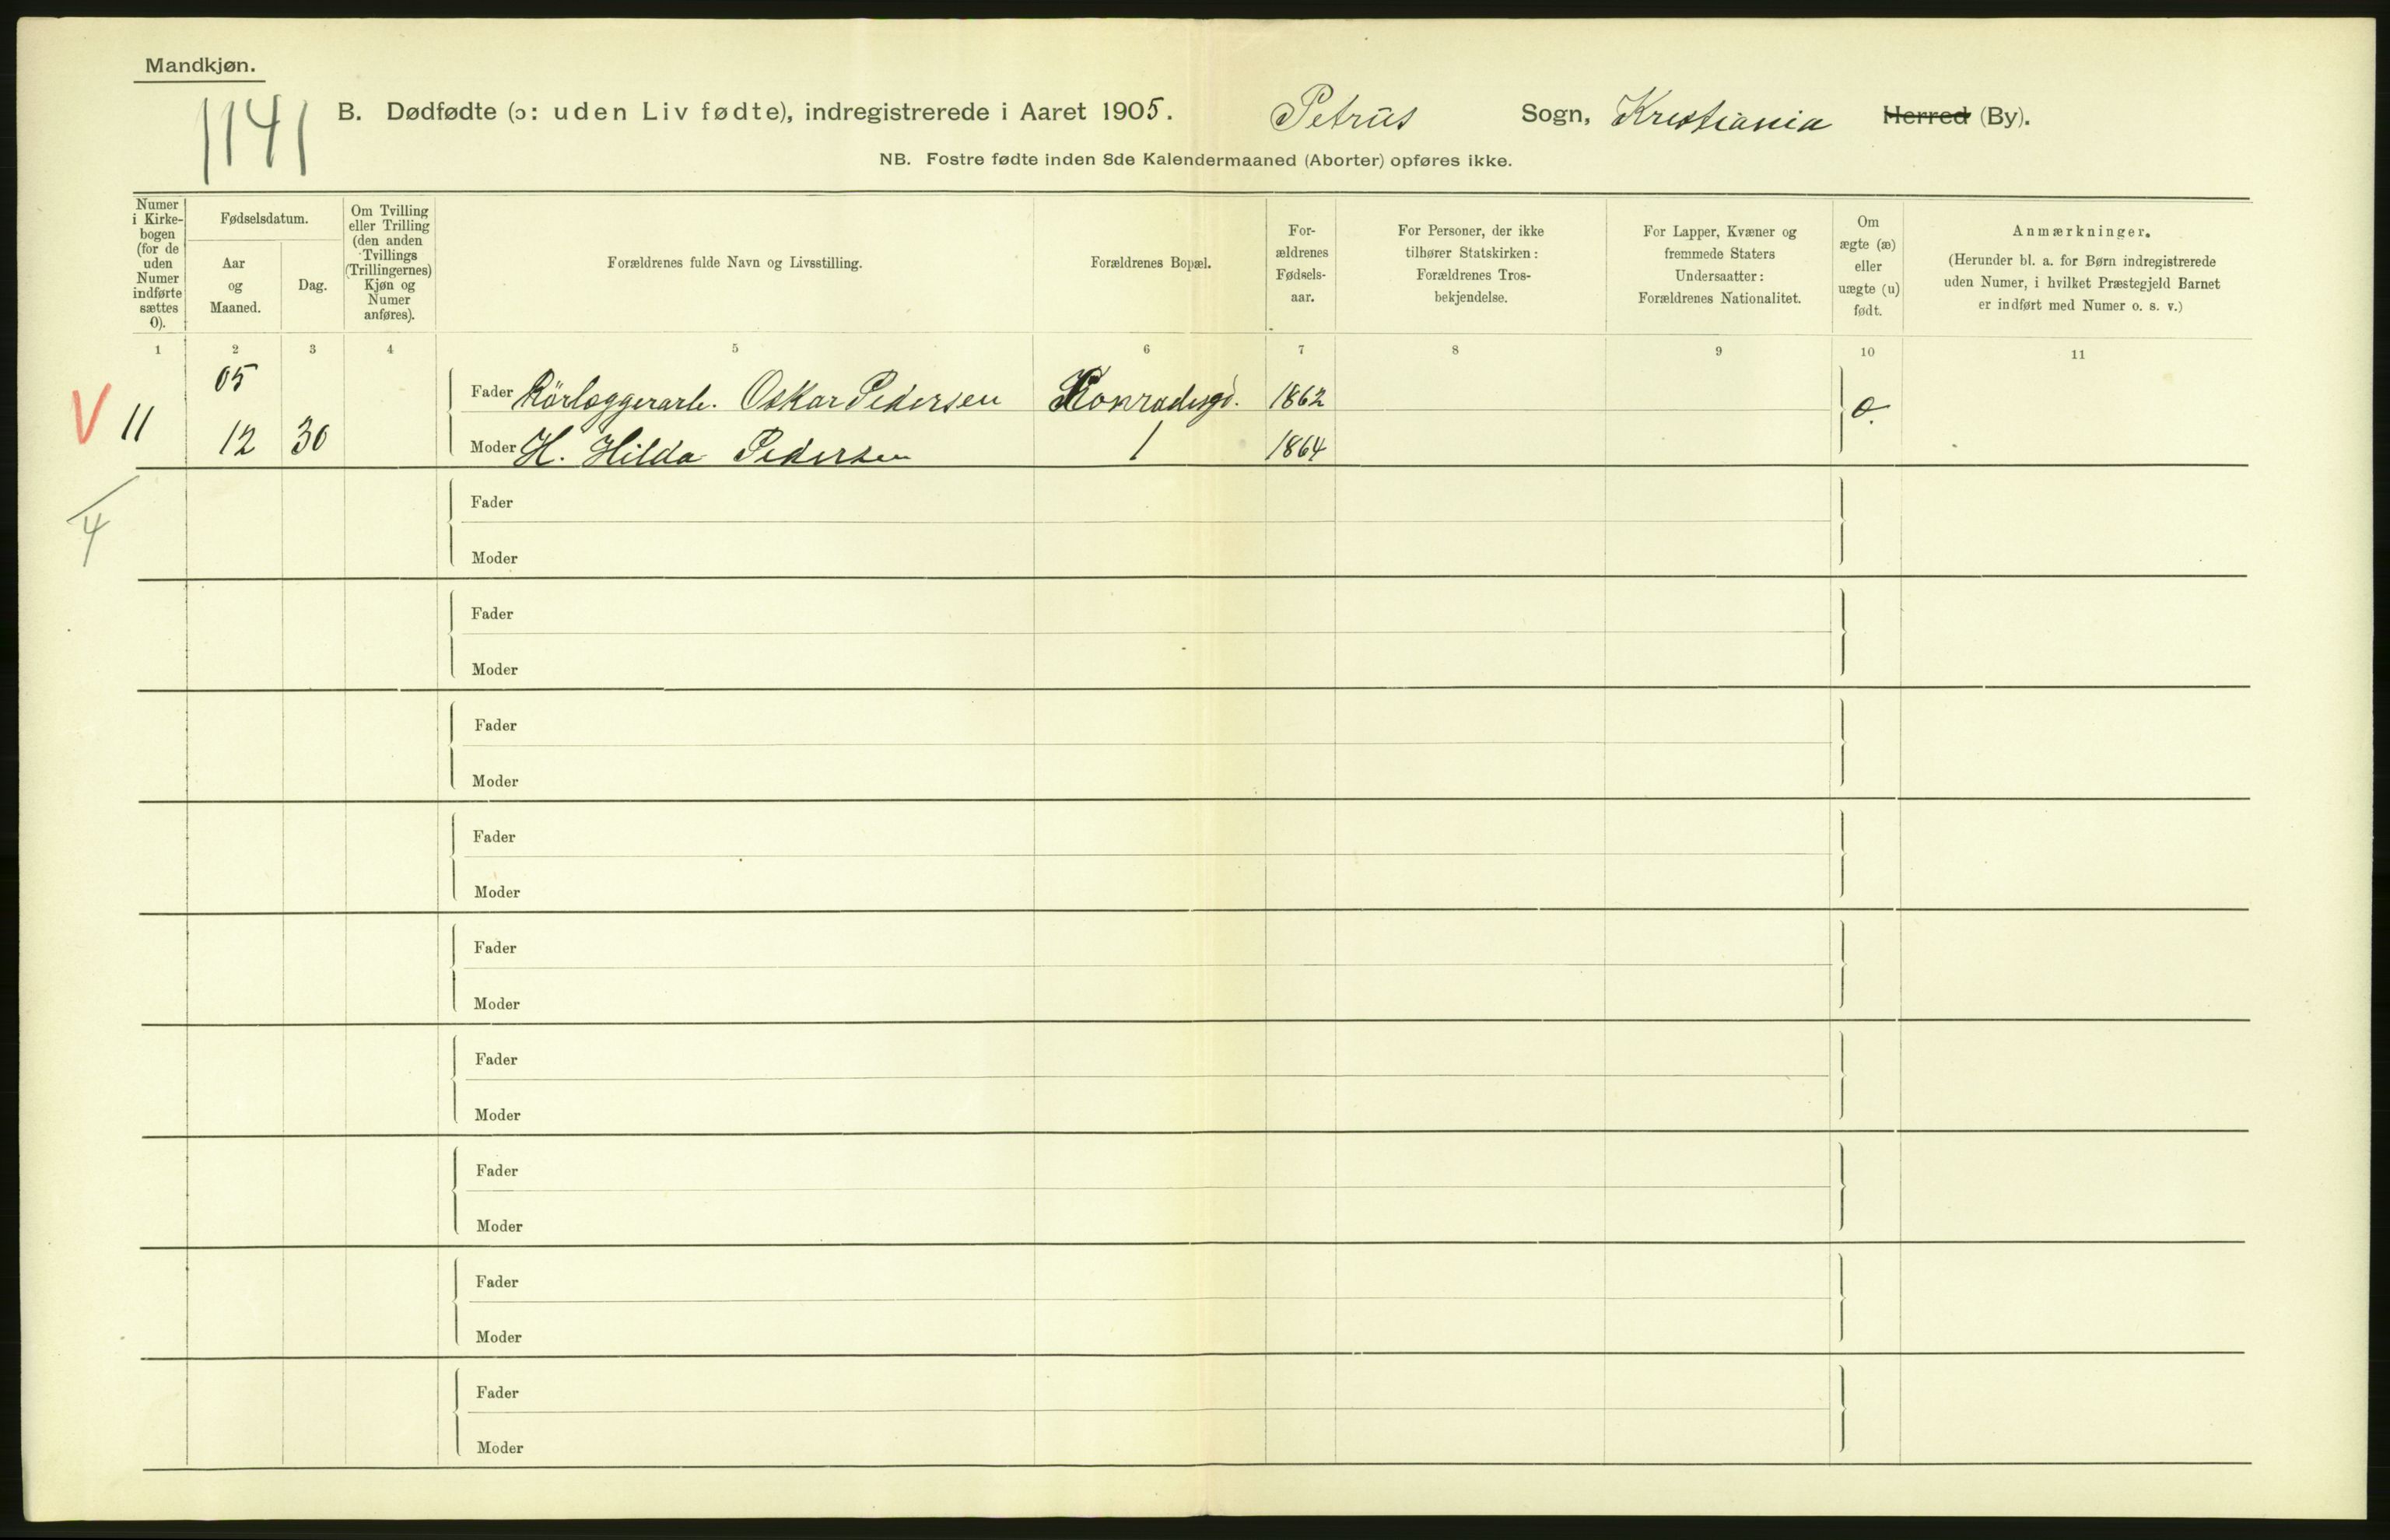 Mandkjøn.
1141
B. Dødfødte (ɔ: uden Liv fødte), indregistrerede i Aaret 1905. Petrus Sogn, Kristiania Herred (By).
NB. Fostre fødte inden 8de Kalendermaaned (Aborter) opføres ikke.
Numer i Kirke-
bogen
(for de
uden
Numer
indførte
sættes
0).
Fødselsdatum.
Aar
og
Maaned.
Dag.
Om Tvilling
eller Trilling
(den anden
Tvillings
(Trillingernes)
Kjøn og
Numer
anføres).
Forældrenes fulde Navn og Livsstilling.
Forældrenes Bopæl.
For-
ældrenes
Fødsels-
aar.
For Personer, der ikke
tilhører Statskirken:
Forældrenes Tros-
bekjendelse.
For Lapper, Kvæner og
fremmede Staters
Undersaatter:
Forældrenes Nationalitet.
Om
ægte (æ)
eller
uægte (u)
født.
Anmærkninger.
(Herunder bl. a. for Børn indregistrerede
uden Numer, i hvilket Præstegjeld Barnet
er indført med Numer o. s. v.)
1 2 3 4 5 6 7 8 9 10 11
05
V 11 Fader Rörlæggerarb. Oskar Pedersen Konradsgd. 1862 æ.
12 30 Moder H. Hilda Pedersen 1 1864
4
Fader
Moder
Fader
Moder
Fader
Moder
Fader
Moder
Fader
Moder
Fader
Moder
Fader
Moder
Fader
Moder
Fader
Moder